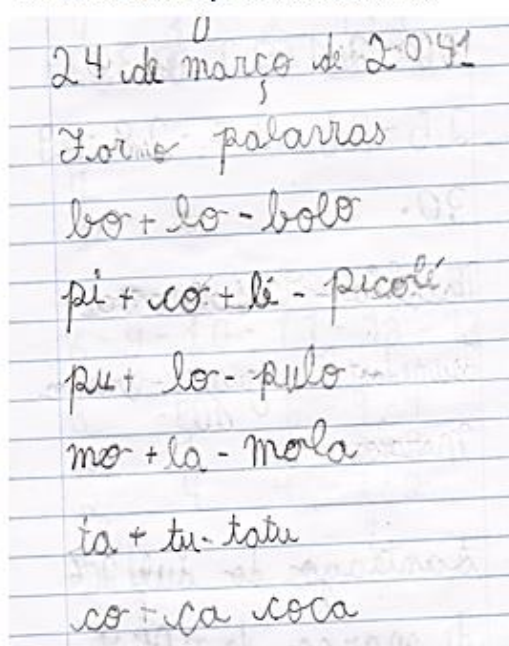 24 de março de
Formo palavras
bo + lo - bolo
pi + co + lé - picolé
pu + lo - pulo
mo + la - mola
ta + tu - tatu
co + ca coca